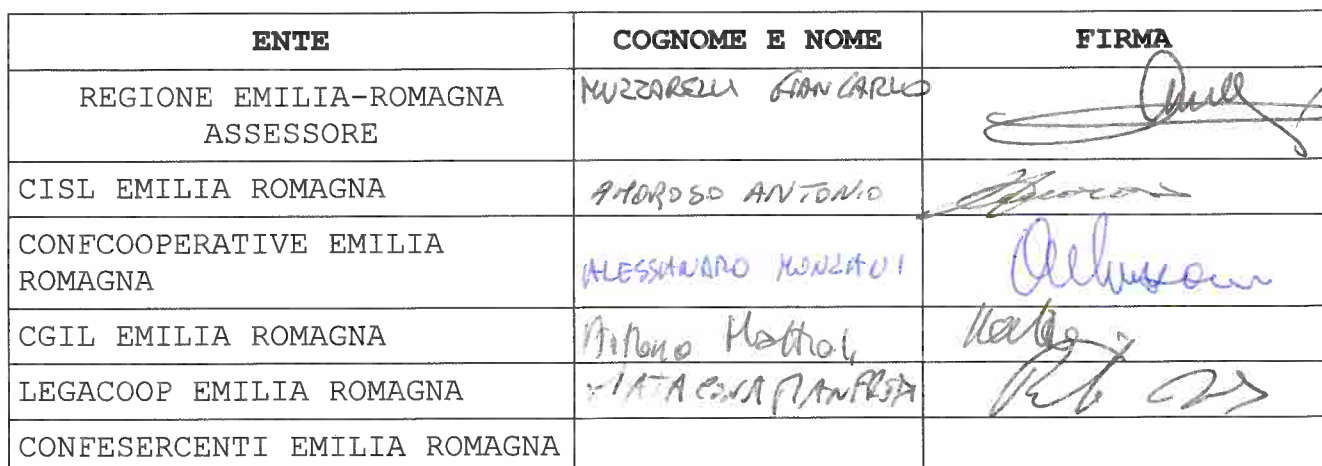 ENTE COGNOME E NOME FIRMA
REGIONE EMILIA-ROMAGNA MUZZARELLI GIANCARLO
ASSESSORE
CISL EMILIA ROMAGNA AMOROSO ANTONIO
CONFCOOPERATIVE EMILIA
ROMAGNA ALESSANDRO MONZANI
CGIL EMILIA ROMAGNA Antonio Mattioli
LEGACOOP EMILIA ROMAGNA
CONFESERCENTI EMILIA ROMAGNA